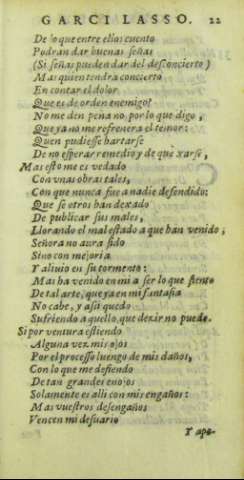 GARCI LASSO. 22
De lo que entre ellos cuento
Podran dar buenas señas
(Si señas pueden dar del desconcierto)
Mas quien tendra concierto
En contar el dolor
Que es de orden enemigo?
No me den pena no, por lo que digo,
Que ya no me refrenera el temor:
Quen pudiesse hartarse
De no esperar remedio y de quexarse,
Mas esto me es vedado
Con vnas obras tales,
Con que nunca fue a nadie defendido:
Que se otros han dexado
De publicar sus males,
Llorando el mal estado a que han venido,
Señora no aura sido
Sino con mejoria
Y aliuio en su tormento:
Mas ha venido en mi a ser lo que siento
De tal arte, que ya en mi fantasia
No cabe, y asi quedo
Sufriendo aquello, que dezir no puedo.
Si por ventura estiendo
Alguna vez mis ojos
Por el processo luengo de mis daños,
Con lo que me defiendo
De tan grandes enojos
Solamente es alli con mis engaños:
Mas vuestros desengaños
Vencen mi desuario
Y ape-